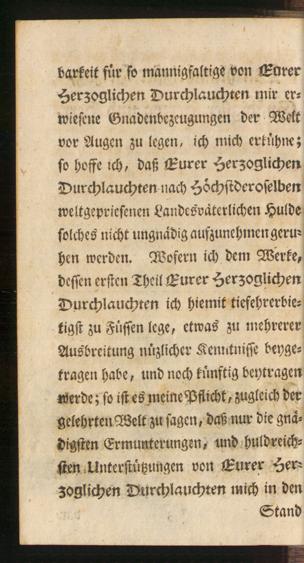 barkeit für so mannigfaltige von Eurer
Herzoglichen Durchlauchten mir er-
wiesene Gnadenbezeugungen der Welt
vor Augen zu legen, ich mich erkühne;
so hoffe ich, daß Eurer Herzoglichen
Durchlauchten nach Höchstderoselben
weltgepriesenen Landesväterlichen Hulde
solches nicht ungnädig aufzunehmen geru-
hen werden. Wofern ich dem Werke,
dessen ersten Theil Eurer Herzoglichen
Durchlauchten ich hiemit tiefehrerbie-
tigst zu Füssen lege, etwas zu mehrerer
Ausbreitung nüzlicher Kenntnisse beyge-
tragen habe, und noch künftig beytragen
werde; so ist es meine Pflicht, zugleich der
gelehrten Welt zu sagen, daß nur die gnä-
digsten Ermunterungen, und huldreich-
sten Unterstützungen von Eurer Her-
zoglichen Durchlauchten mich in den
Stand